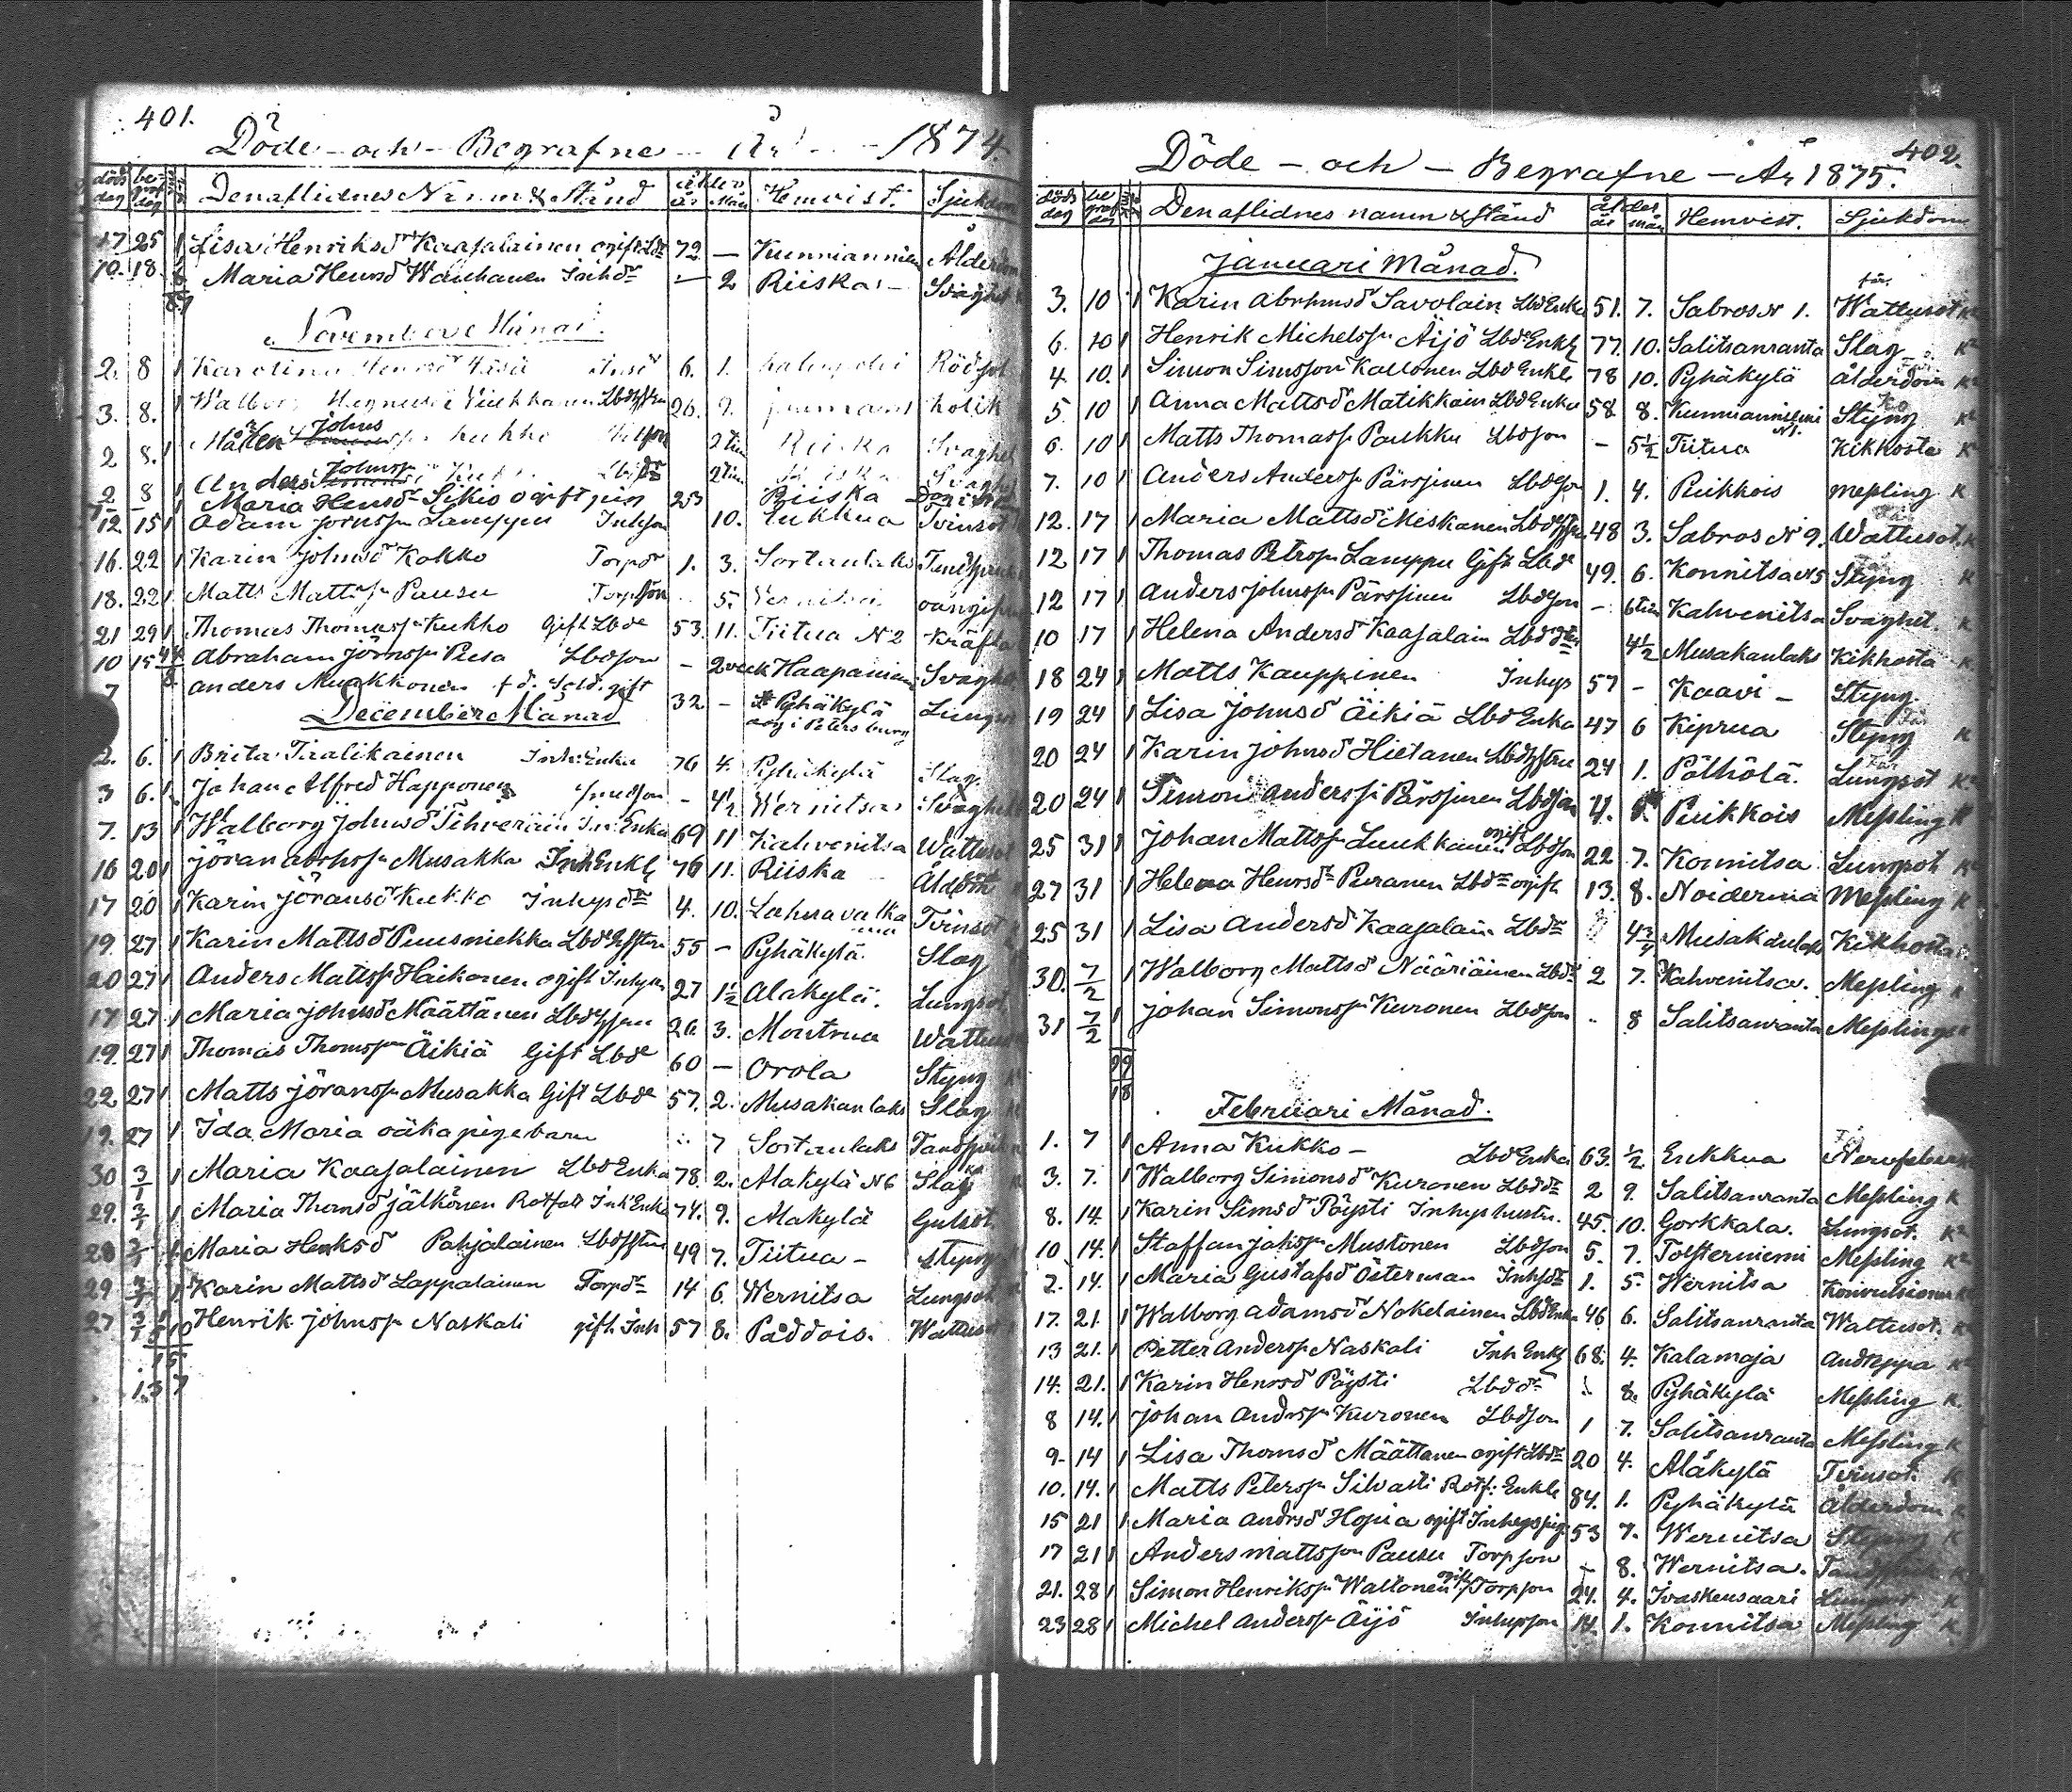 401.
Döde - och - Begrafne - År - 1874.
döds dag be- graf dag Den aflidnes Namn & Stånd ålder år Mån Hemvist. Sjukdom
17 25 1 Lisa Henriksdr Kaajalainen ogift Lbdr 72 — Kunnianniemi Ålderdom
10. 18. Maria Henrsd Wanhanen Inhdr — 2 Riiska - Svaghet
November Månad.
2. 8 1 Karolina 6. 1. Rödsot
3. 8. 1 Walborg Lbdhustru 26. 9. kolik
2 8. 1 Måtten Johns Kukko 2 tim Riiska Svaghet
2 8 1 Anders Johnsp 2 tim Svaghet
Maria Hensdr Sikiö ogift pig 23 Riiska
12. 15 1 Adam Jörnsp Lamppu Inhson 10. Eukkua Tvinsot
16. 22 1 Karin Johnsd Kokko Torpdr 1. 3. Sortanlaks Tandspr
18. 22 1 Matts Mattsp Pausu Torpson 5. Vernitsa
21 29 1 Thomas Thomasp Kukko Gift Lbde 53. 11. Tiitua N2 Kräfta
10 15 Abraham Jörnsp Piesa Lbdson - 2 veck Haapaniemi Svaghet
7 Anders Muukkonen f.d. Sold. gift 32 - Pyhäkylä Lungsot
dog i Petersburg
December Månad
2. 6. 1 Brita Tiaalikainen Inh: Enka 76 4. Pyhäkylä Slag
3 6. 1 Johan Alfred Happonen Inhson - 4½ Wernitsa Svaghet
7. 13 1 Walborg Johnsd Tihveräin Inh: Enka 69 11 Kahvenitsa Wattusot
16 20 1 Jöran Abrhsp Musakka Inh Enkl 76 11. Riiska - Ålddom
17 20 1 Karin Jöransd Kukko Inhysdr 4. 10. Lahnavalka Tvinsot
19. 27 1 Karin Mattsd Puusniekka Lbdhustru 55 - Pyhäkylä Slag
20 27 1 Anders Mattsp Haikonen ogift Inhson 27 1½ Alakylä. Lungsot
17 27. 1 Maria Johnsd Määttänen Lbdhustru 26 3. Montrua Wattusot
19. 27 1 Thomas Thomsp Äikiä Gift Lbde 60 - Orola Styng
22 27 1 Matts Jöransp Musakka Gift Lbde 57. 2. Musakanlaks Slag
19. 27 1 Ida Maria oäkta pigebarn 7 Sortanlaks Tandspr
30 3/1 1 Maria Kaajalainen Lbd Enka 78. 2. Alakylä N6 Slag
29. 3/1 1 Maria Thomsd Jälkönen Rotfatt Inh Enka 74. 9. Alakylä Gulsot.
28 3/1 1 Maria Henksd Pahjalainen Lbdhstru 49 7. Tiitua - Styng
29 3/1 1 Karin Mattsd Lappalainen Torpdr 14 6. Wernitsa Lungsot
27 3/1 Henrik Johnsp Naskali gift Inh 57 8. Paddois. Wattusot
15
137
402.
Döde - och - Begrafne - År 1875.
döds dag be graf dag Den aflidnes namn & stånd ålder år mån Hemvist. Sjukdom
Januari Månad.
3. 10 1 Karin Abrhmsd Savolain Lbd Enka 51. 7. Sabros N 1. Wattusot K
6. 10 1 Henrik Michelsp Äijö Lbd Enkl 77. 10. Salitsanranta Slag K
4 10. 1 Simon Simsson Kallonen Lbd Enkl 78 10. Pyhäkylä Ålderdom K
5 10 1 Anna Mattsd Matikkain Lbd Enka 58 8. Kunnianniemi Styng K
6. 10 1 Matts Thomassp Paukku Lbdson - 5½ Tiitua Kikhosta K
7. 10 1 Anders Andersp Pärssinen Lbdson 1. 4. Puikkois messling K
12. 17 1 Maria Mattsd Miskanen Lbdhstru 48 3. Sabros N 9. Wattusot. K
12 17 1 Thomas Petrsp Lamppu Gift Lbde 49. 6. Konnitsa N5 Styng K
12 17 1 Anders Johnsp Pärssinen Lbdson - 6 tim Kahvenitsa Svaghet. K
10 17 1 Helena Andersd Kaajalain Lbd dtr 4½ Musakanlaks Kikhosta K
18 24 1 Matts Kauppinen Inhys 57 - Kaavi - Styng.
19 24 1 Lisa Johnsd Äikiä Lbd Enka 47 6 Kiprua Styng K
20 24 1 Karin Johnsd Hietanen Lbdhstru 24 1. Pölhölä. Lungsot K
20 24 1 Simon Andersp Pärssinen Lbdson 4. Puikkois Messling K
25 31 1 Johan Mattsp Luukkanen ogift Lbdson 22 7. Konnitsa Lungsot K
27 31 1 Helena Henrsdr Puranen Lbdr ogift 13. 8. Noiderma Messling K
25 31 1 Lisa Andersd Kaajalain Lbdr 4¾ Musakanlaks Kikhosta
30. 7/2 1 Walborg Mattsd Nääriäinen Lbdr 2 7. Kahvenitsa. Messling K
31 7/2 1 Johan Simonsp Kuronen Lbdson 8 Salitsanranta Messling K
9 9
18
Februari Månad.
1. 7 1 Anna Kukko - Lbd Enka 63. ½ Eukkua Nervfeber
3. 7. 1 Walborg Simonsd Kuronen Lbd dr 2 9. Salitsanranta Messling K
8. 14. 1 Karin Simsd Pöysti Inhys hustru. 45. 10. Gorkkala. Lungsot. K
10 14. 1 Staffan Jaksp Mustonen Lbdson 5. 7. Tolsterniemi Messling K
2. 14. 1 Maria Gustafsd Österman Inhsdr 1. 5. Wernitsa Konvulsioner K
17. 21. 1 Walborg Adamsd Nokelainen Lbd Enka 46 6. Salitsanranta Wattusot. K
13 21. 1 Petter Andersp Naskali Inh Enkl 68. 4. Kalamaja Andteppa K
14. 21. 1 Karin Henrsd Pöysti Lbd dr 8. Pyhäkylä Messling K.
8 14. 1 Johan Andrsp Kuronen Lbdson 1 7. Salitsanranta Messling K
9. 14 1 Lisa Thomsd Määttanen ogift Lbdr 20 4. Alakylä Tvinsot. K
10. 14. 1 Matts Petersp Silvatti Rotf: Enkle 84. 1. Pyhäkylä Ålderdom K
15 21 1 Maria Andrsd Hopia ogift Inhyspiga 53 7. Wernitsa Styng K
17 21 1 Anders Mattsson Pausu Torpson - 8. Wernitsa.
21. 28 1 Simon Henriksp Waltonen ogift Torpson 24. 4. Ivaskensaari Lungsot K
23 28 1 Michel Andersp Äijö Inhysson 14. 1. Konnitsa Messling K